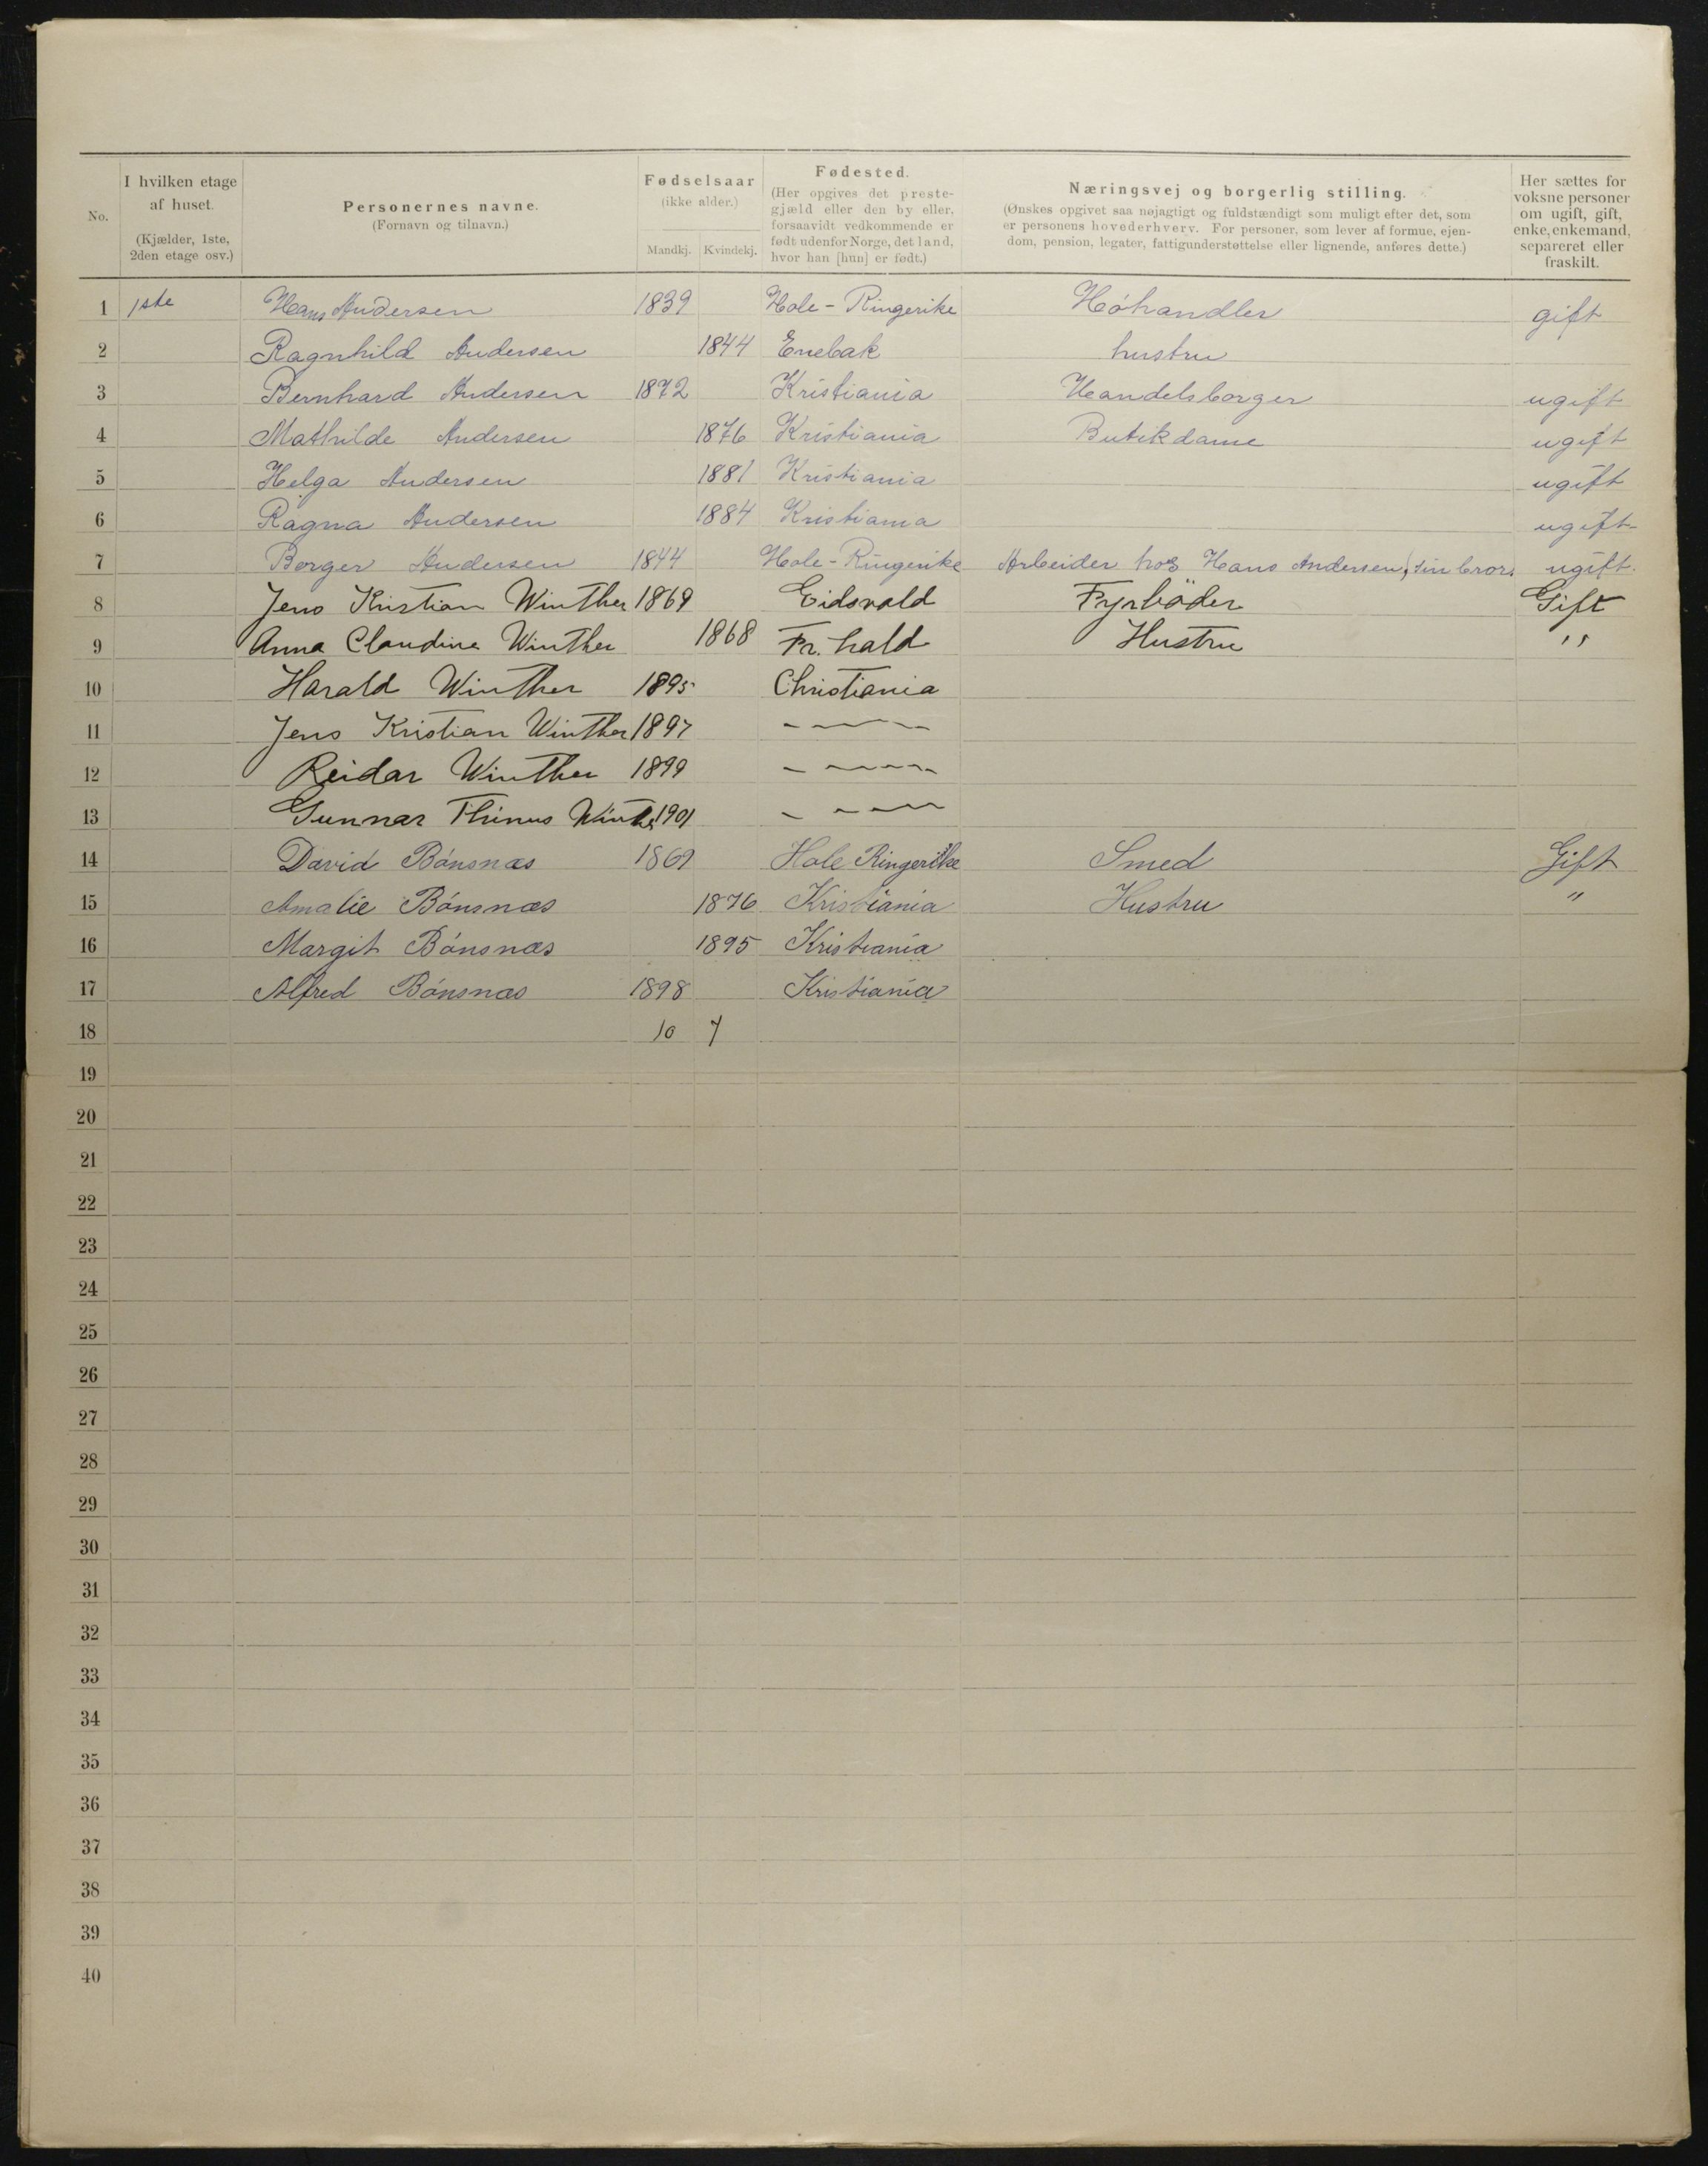 No.
I hvilken etage af huset.
(Kjælder, 1ste, 2den etage osv.)
Personernes navne.
(Fornavn og tilnavn.)
Fødselsaar
(ikke alder.)
Mandkj. Kvindekj.
Fødested.
(Her opgives det prestegjæld eller den by eller, forsaavidt vedkommende er født udenfor Norge, det land, hvor han [hun] er født.)
Næringsvej og borgerlig stilling.
(Ønskes opgivet saa nøjagtigt og fuldstændigt som muligt efter det, som er personens hovederhverv. For personer, som lever af formue, ejendom, pension, legater, fattigunderstøttelse eller lignende, anføres dette.)
Her sættes for voksne personer om ugift, gift, enke, enkemand, separeret eller fraskilt.
1 1ste Hans Andersen 1839 Hole - Ringerike Höhandler gift
2 Ragnhild Andersen 1844 Enebak hustru
3 Bernhard Andersen 1872 Kristiania Handelsborger ugift
4 Mathilde Andersen 1876 Kristiania Butikdame ugift
5 Helga Andersen 1881 Kristiania ugift
6 Ragna Andersen 1884 Kristiania ugift
7 Borger Andersen 1844 Hole - Ringerike Arbeider hos Hans Andersen, sin bror. ugift.
8 Jens Kristian Winther 1869 Eidsvold Fyrböder Gift
9 Anna Claudine Winther 1868 Fr. hald Hustru "
10 Harald Winther 1895 Christiania
11 Jens Kristian Winther 1897 — ——
12 Reidar Winther 1899 — ——
13 Gunnar Thinus Winther 1901 — ——
14 David Bónsnæs 1869 Hole Ringerike Smed Gift
15 Amalie Bónsnæs 1876 Kristiania Hustru "
16 Margit Bónsnæs 1895 Kristiania
17 Alfred Bónsnæs 1898 Kristiania
18 10 7
19
20
21
22
23
24
25
26
27
28
29
30
31
32
33
34
35
36
37
38
39
40